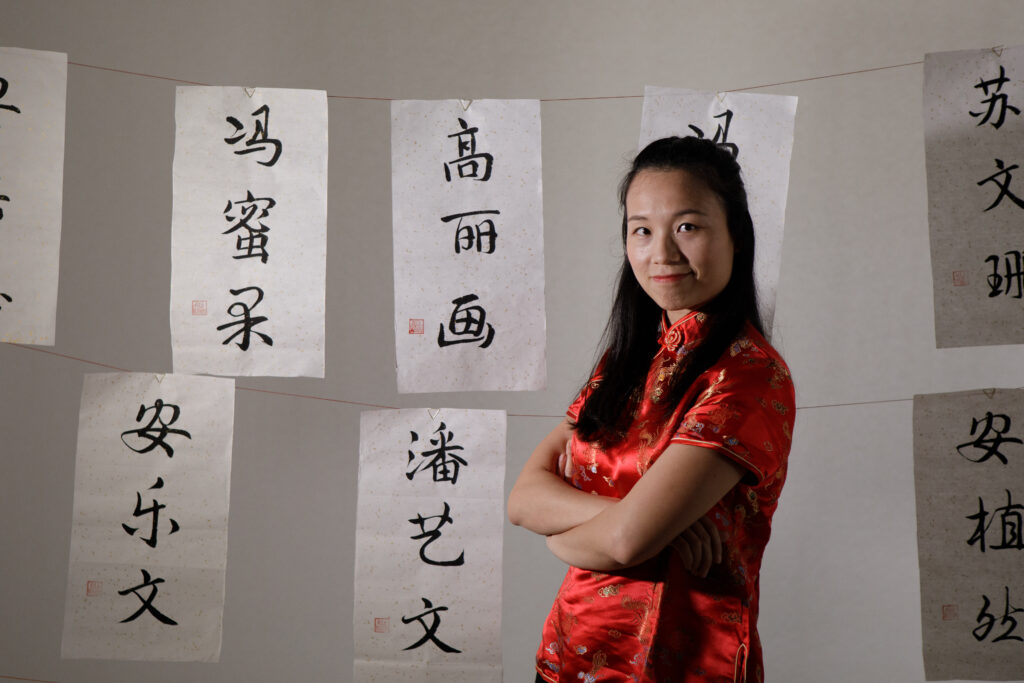 冯蜜柔
高丽画
冯
苏文珊
安乐文
潘艺文
安植然